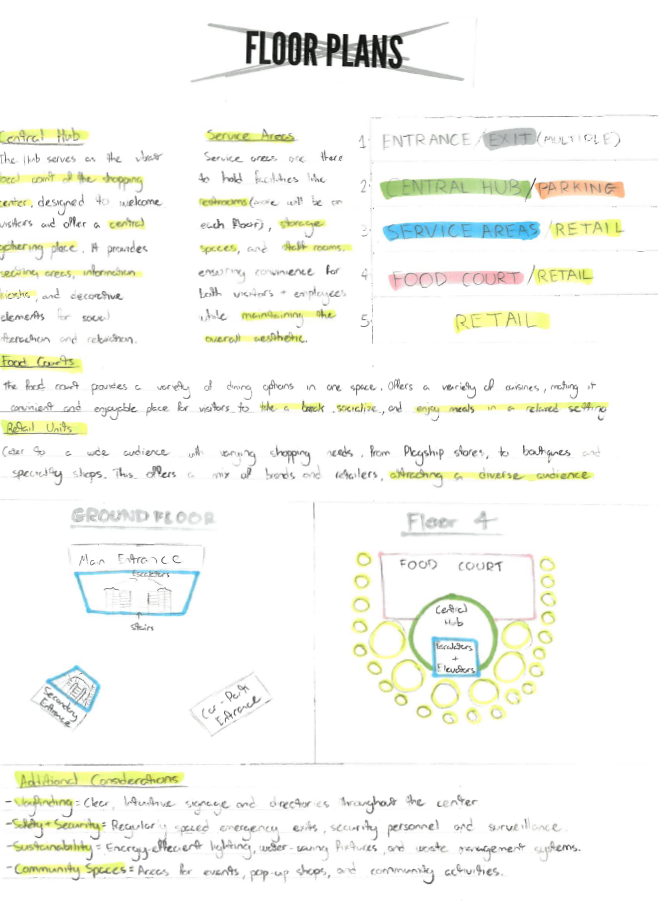 FLOOR PLANS
Central Hub
The Hub serves as the vibrant
focal point of the shopping
center, designed to welcome
visitors and offer a central
gathering place. It provides
seating areas, information
kiosks, and decorative
elements for social
interaction and relaxation.
Service Areas
Service areas are there
to hold facilities like
restrooms (more will be on
each floor), storage
spaces, and staff rooms,
ensuring convenience for
both visitors + employees
while maintaining the
overall aesthetic.
1. ENTRANCE/EXIT (MULTIPLE)
2. CENTRAL HUB/PARKING
3. SERVICE AREAS/RETAIL
4. FOOD COURT/RETAIL
5. RETAIL
Food Courts
The food court provides a variety of dining options in one space. Offers a variety of cuisines, making it
convinient and enjoyable place for visitors to take a break, socialize, and enjoy meals in a relaxed setting
Retail Units
Cater to a wide audience with varying shopping needs. From flagship stores, to boutiques and
specialty shops. This offers a mix of brands and retailers, attracting a diverse audience
GROUND FLOOR
Main Entrance
Escalators
Stairs
Secondary
Entrance
Car-Park
Entrance
Floor 4
FOOD COURT
Central
Hub
Escalators
+
Elevators
Additional Considerations
- Wayfinding = Clear, intuitive signage and directories throughout the center
- Safety + Security = Regularly spaced emergency exits, security personnel and surveillance.
- Sustainability = Energy-efficient lighting, water-saving fixtures, and waste management systems.
- Community Spaces = Areas for events, pop-up shops, and community activities.